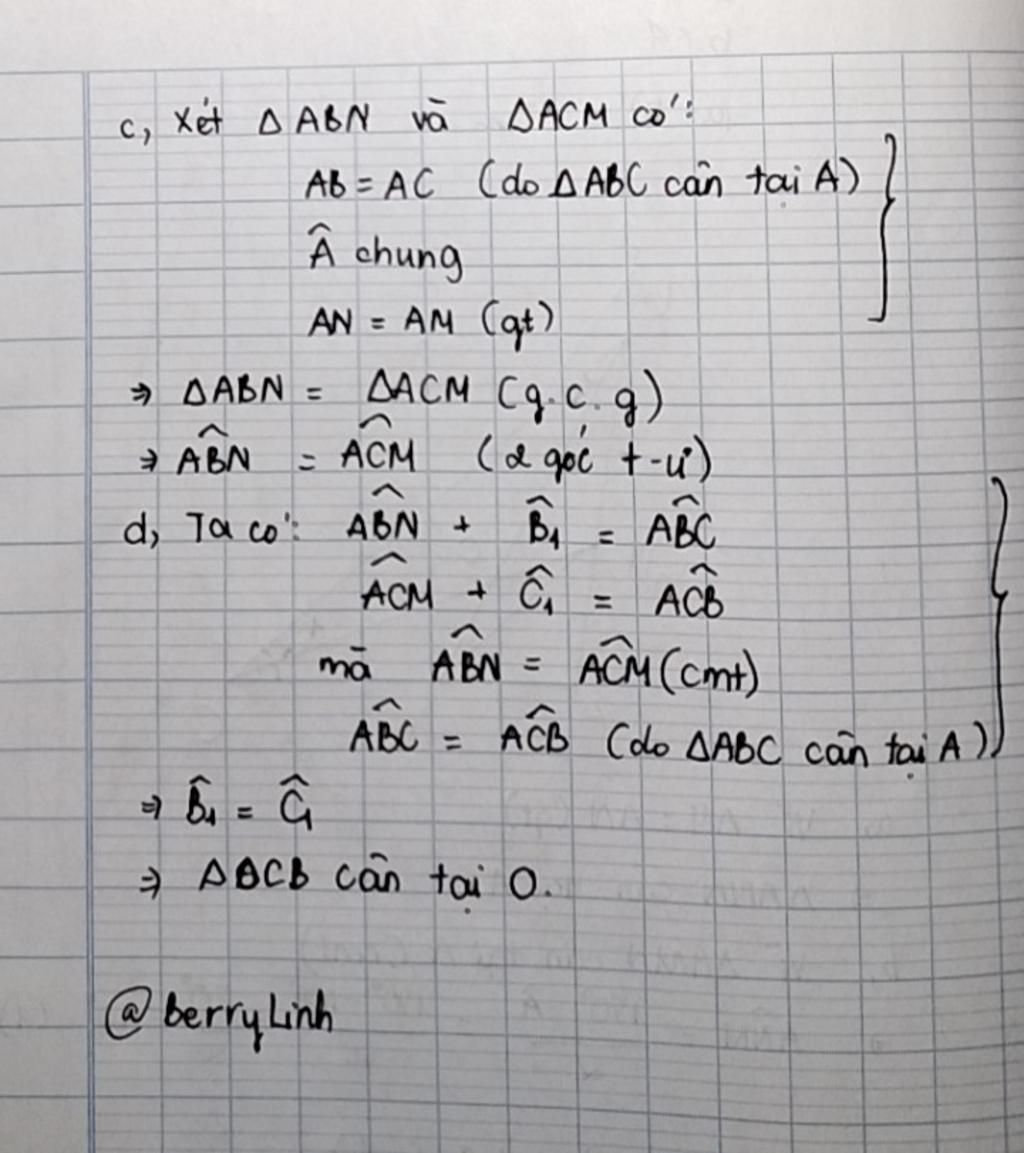 c, Xét ΔABN và ΔACM có:
AB = AC (do ΔABC cân tại A)
Â chung
AN = AM (gt)
⇒ ΔABN = ΔACM (g.c.g)
⇒ \widehat{ABN} = \widehat{ACM} (2 góc t-ư)
d, Ta có: \widehat{ABN} + \widehat{B}₁ = \widehat{ABC}
\widehat{ACM} + \widehat{C}₁ = \widehat{ACB}
mà \widehat{ABN} = \widehat{ACM} (cmt)
\widehat{ABC} = \widehat{ACB} (do ΔABC cân tại A)
⇒ \widehat{B}₁ = \widehat{C}₁
⇒ ΔOCB cân tại O.
@berryLinh